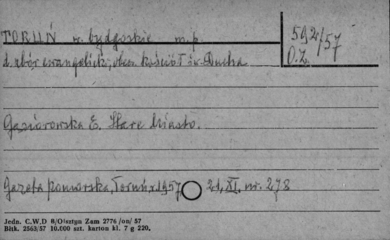 TORUŃ w. bydgoskie m.p.
592/57
O.Z.
d. zbór ewangelick, oben. kościół św. Ducha
Gąsiorowska E. Stare Miasto.
Gazeta Pomorska, Toruń, 1957 21.XI. nr. 278
Jedn. C.W.D 8/Olsztyn Zam 2776 /on/ 57
Bltk. 2563/57 10.000 szt. karton kl. 7 g 220.